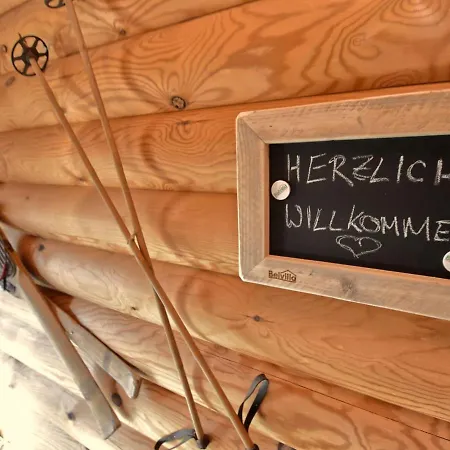 HERZLICH
WILLKOMME
Belvilla